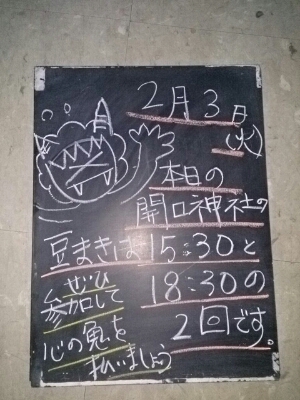 2月3日
(火)
本日の
開口神社の
豆まきは15:30と
18:30の
2回です。
ぜひ
参加して
心の鬼を
払いましょう